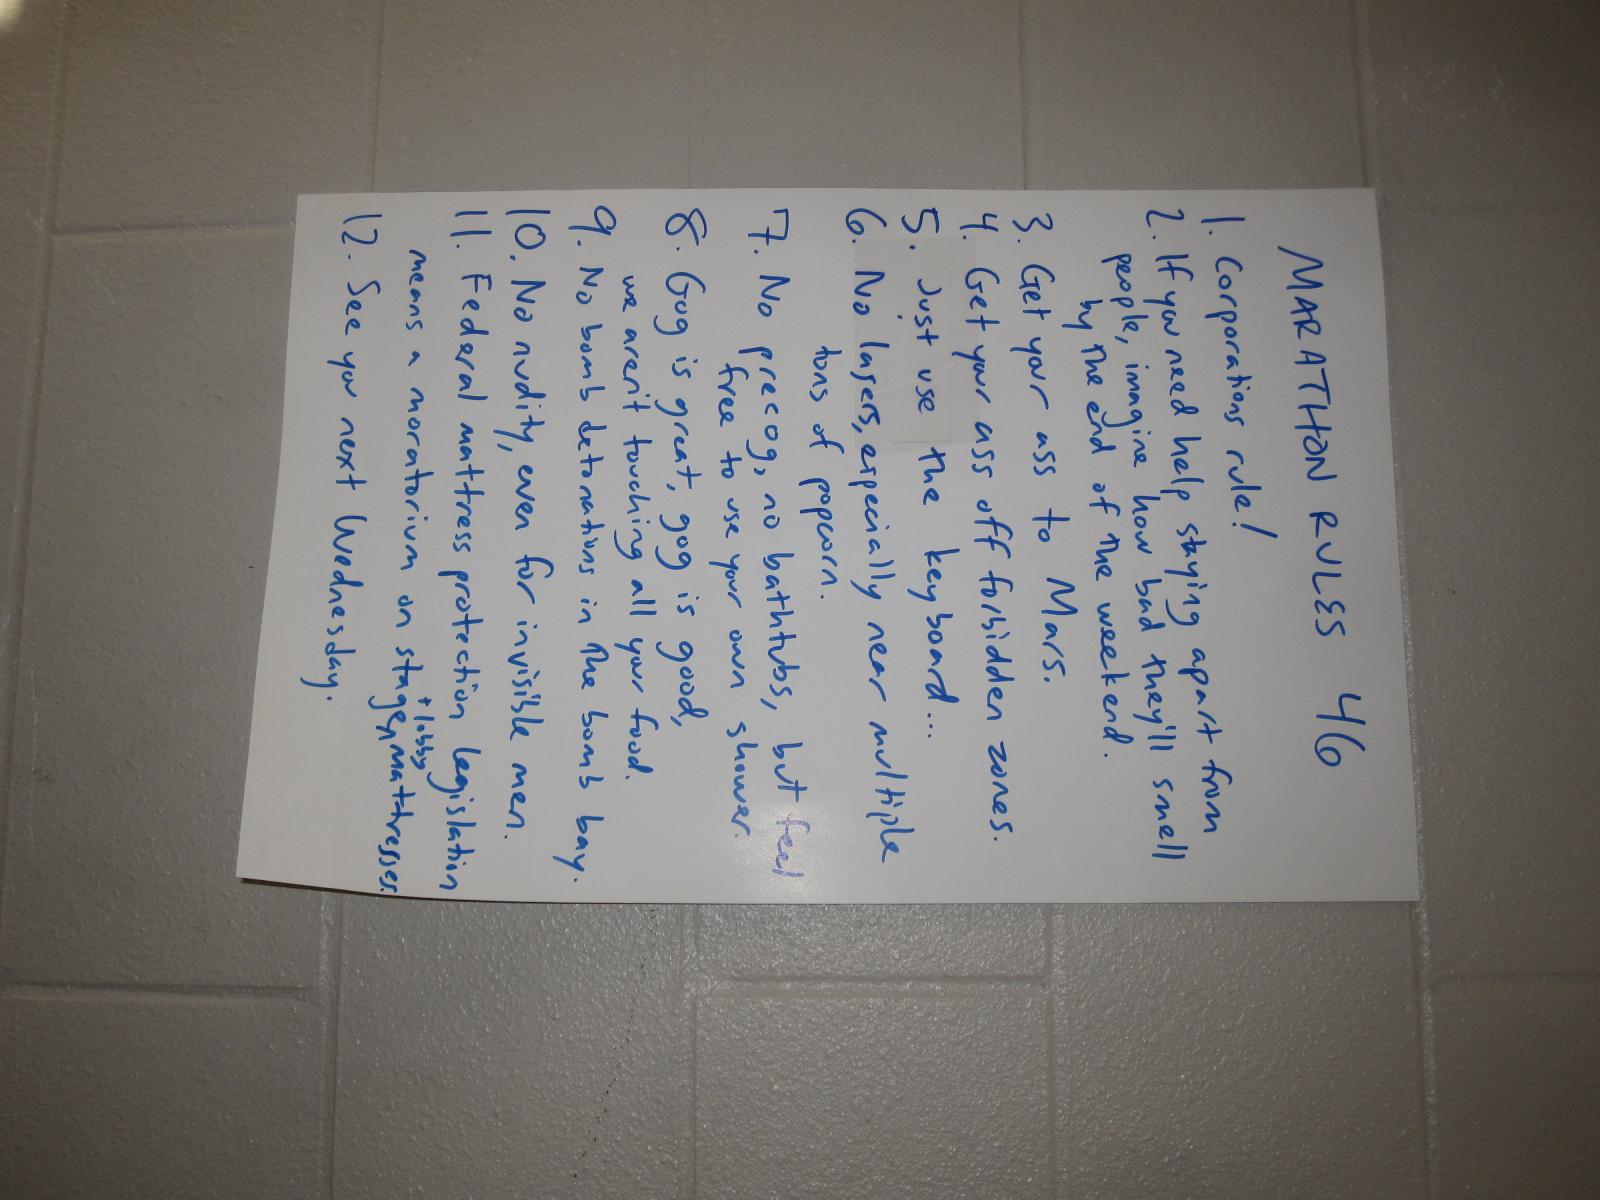 MARATHON RULES 46
1. Corporations rule!
2. If you need help staying apart from
people, imagine how bad they'll smell
by the end of the weekend.
3. Get your ass to Mars.
4. Get your ass off forbidden zones.
5. Just use the keyboard...
6. No lasers, especially near multiple
tons of popcorn.
7. No precog, no bathtubs, but feel
free to use your own shower.
8. Gog is great, gog is good,
we aren't touching all your food.
9. No bomb detonations in the bomb bay.
10. No nudity, even for invisible men.
11. Federal mattress protection legislation
means a moratorium on stage + lobby mattresses.
12. See you next Wednesday.